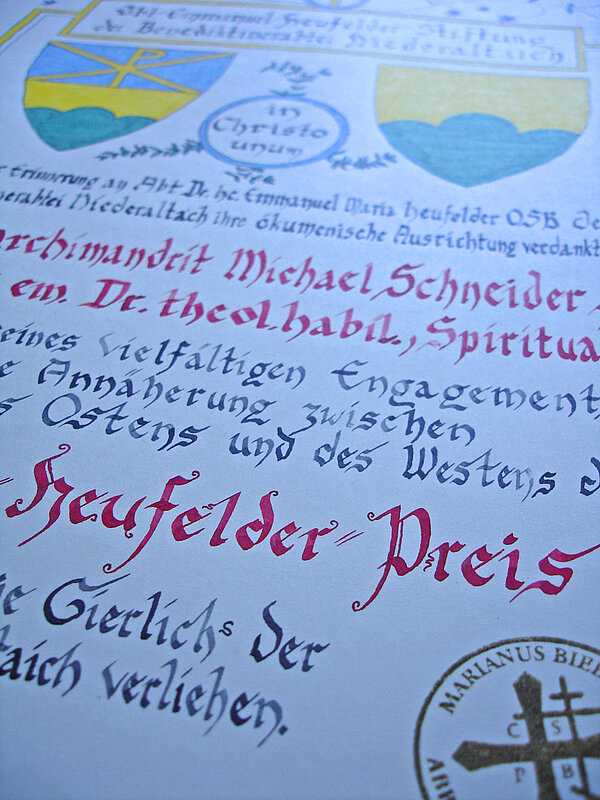 Abt Emmanuel Heufelder Stiftung
der Benediktinerabtei Niederaltaich
in
Christo
unum
Erinnerung an Abt Dr. hc. Emmanuel Maria Heufelder OSB
Niederaltach ihre ökumenische Ausrichtung verdankt
archimandrit Michael Schneider
em. Dr. theol. habil., Spiritua
eines vielfältigen Engagement
Annäherung zwischen
Ostens und des Westens
-Heufelder-Preis
Gierlichs der
aich verliehen.
MARIANUS BIE
C S
P B